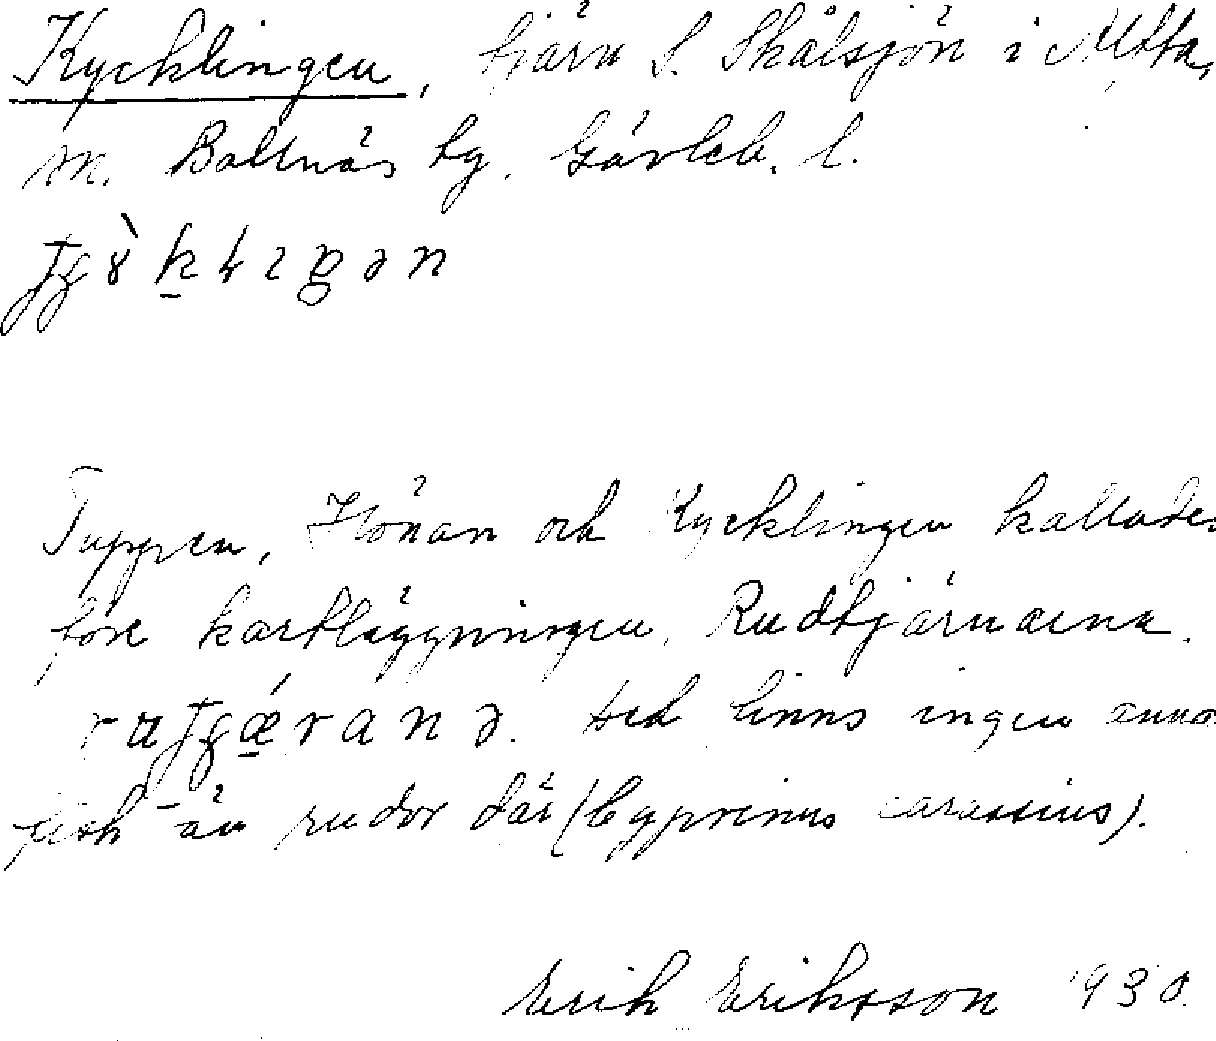 Kycklingen, tjärn S. Skålsjön i Alfta,
sn. Bollnäs tg. Gävleb. l.
Tuppen, Hönan och Kycklingen kallades
före kartläggningen, Rudtjärnarna.
Det finns ingen anna
fisk än rudor där (Cyprinus carassius).
Erik Eriksson 1930.